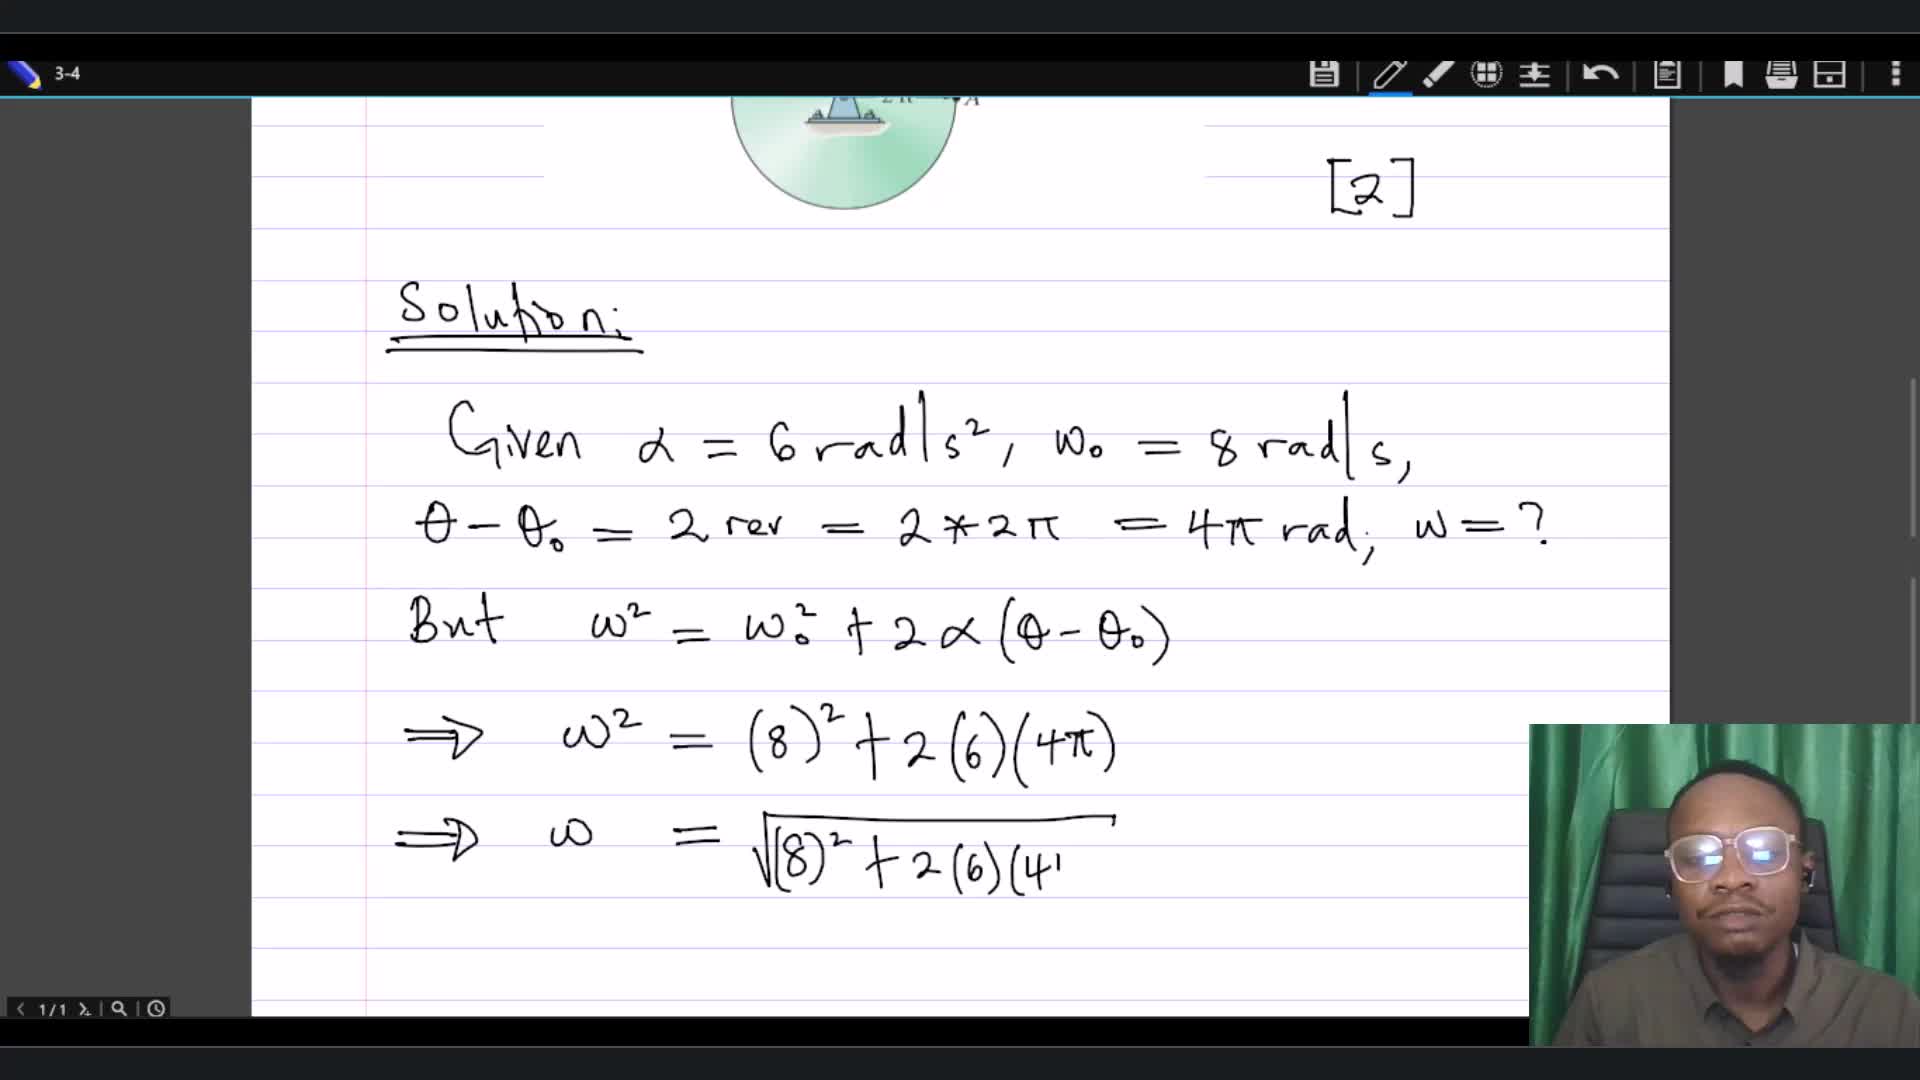 3-4
2 ft A
[2]
Solution:
Given α = 6 rad/s², ω₀ = 8 rad/s,
θ - θ₀ = 2 rev = 2*2π = 4π rad; ω = ?
But ω² = ω₀² + 2α(θ - θ₀)
⇒ ω² = (8)² + 2(6)(4π)
⇒ ω = √(8)² + 2(6)(4
1/1